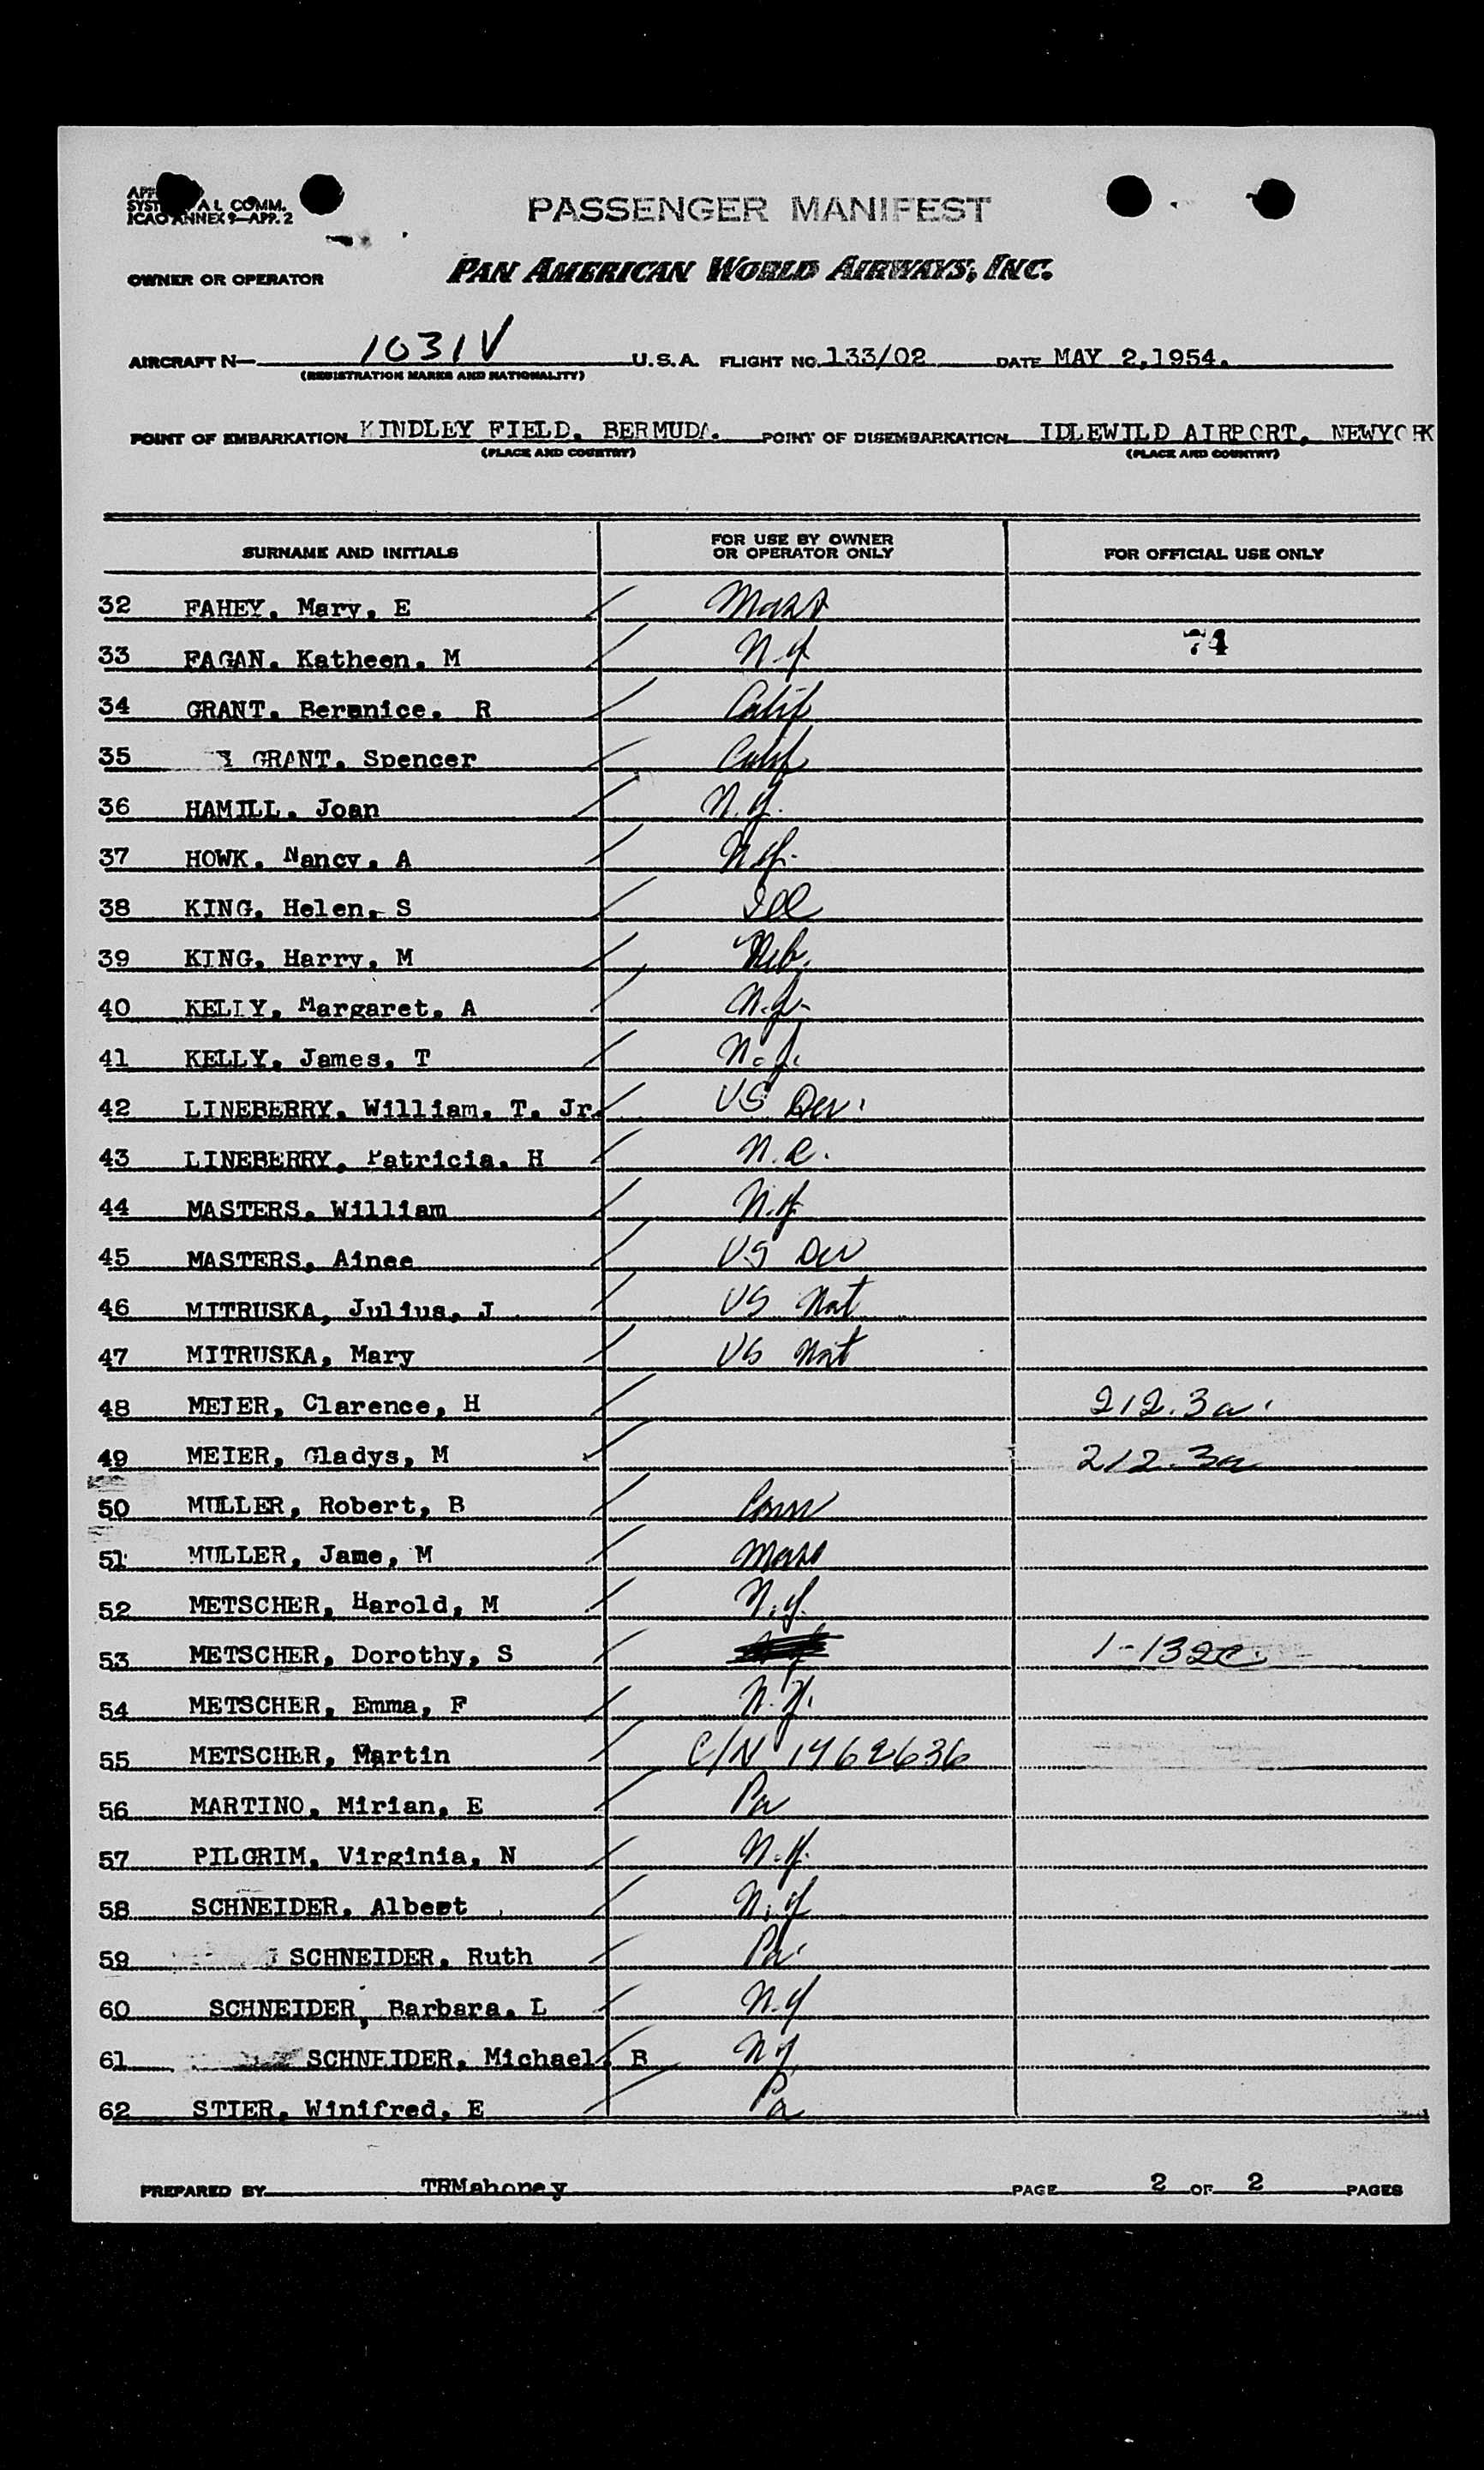 AL COMM.
ICAO ANNEX 9—APP. 2
PASSENGER MANIFEST
OWNER OR OPERATOR PAN AMERICAN WORLD AIRWAYS, INC.
AIRCRAFT N— 1031V U.S.A. FLIGHT NO. 133/02 DATE MAY 2,1954.
(REGISTRATION MARKS AND NATIONALITY)
POINT OF EMBARKATION KINDLEY FIELD, BERMUDA. POINT OF DISEMBARKATION IDLEWILD AIRPORT, NEWYORK
(PLACE AND COUNTRY) (PLACE AND COUNTRY)
SURNAME AND INITIALS FOR USE BY OWNER OR OPERATOR ONLY FOR OFFICIAL USE ONLY
32 FAHEY, Mary, E / Mass
33 FAGAN, Katheen, M / N.Y 74
34 GRANT, Beranice, R / Calif
35 GRANT, Spencer / Calif
36 HAMILL, Joan / N.Y.
37 HOWK, Nancy, A / N.Y.
38 KING, Helen, S / Ill
39 KING, Harry, M / Neb.
40 KELLY, Margaret, A /
41 KELLY, James, T / N.J.
42 LINEBERRY, William, T. Jr. / US Der.
43 LINEBERRY, Patricia, H / N.C.
44 MASTERS, William / N.Y.
45 MASTERS, Ainee / US Der
46 MITRUSKA, Julius, J / US Nat
47 MITRUSKA, Mary / US Nat
48 MEIER, Clarence, H / 212.3a.
49 MEIER, Gladys, M / 212.3a
50 MULLER, Robert, B / Conn
51 MULLER, Jame, M / Mass
52 METSCHER, Harold, M / N.Y.
53 METSCHER, Dorothy, S / 1-132c.
54 METSCHER, Emma, F / N.Y.
55 METSCHER, Martin / C/N 1762636
56 MARTINO, Mirian, E / Pa
57 PILGRIM, Virginia, N / N.Y.
58 SCHNEIDER, Albert / N.Y
59 SCHNEIDER, Ruth / Pa.
60 SCHNEIDER, Barbara, L / N.Y
61 SCHNEIDER, Michael, B / NY
62 STIER, Winifred, E / Pa
PREPARED BY TRMahoney PAGE 2 OF 2 PAGES